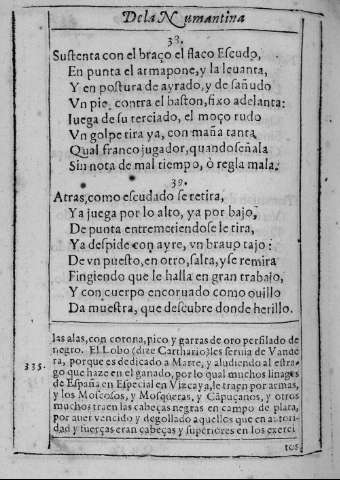 De la Numantina
38.
Sustenta con el braço el flaco Escudo,
En punta el arma pone, y la leuanta,
Y en postura de ayrado, y de sañudo
Vn pie contra el baston, fixo adelanta:
Iuega de su terciado, el moço rudo
Vn golpe tira ya, con maña tanta
Qual franco jugador, quando señala
Sin nota de mal tiempo, ò regla mala.
39.
Atras, como escudado se retira,
Ya juega por lo alto, ya por bajo,
De punta entremetiendose le tira,
Ya despide con ayre, vn brauo tajo:
De vn puesto, en otro, salta, y se remira
Fingiendo que le halla en gran trabajo,
Y con cuerpo encoruado como ouillo
Da muestra, que descubre donde herillo.
las alas, con corona, pico y garras de oro perfilado de
negro. El Lobo (dize Carthario) les seruia de Vande
ra, porque es dedicado a Marte, y aludiendo al estra-
335. go que haze en el ganado, por lo qual muchos linages
de España en Especial en Vizcaya, le traen por armas,
y los Moscosos, y Mosqueras, y Capuçanos, y otros
muchos traen las cabeças negras en campo de plata,
por auer vencido y degollado aquellos que en autori-
dad y fuerças eran cabeças y superiores en los exerci
tos